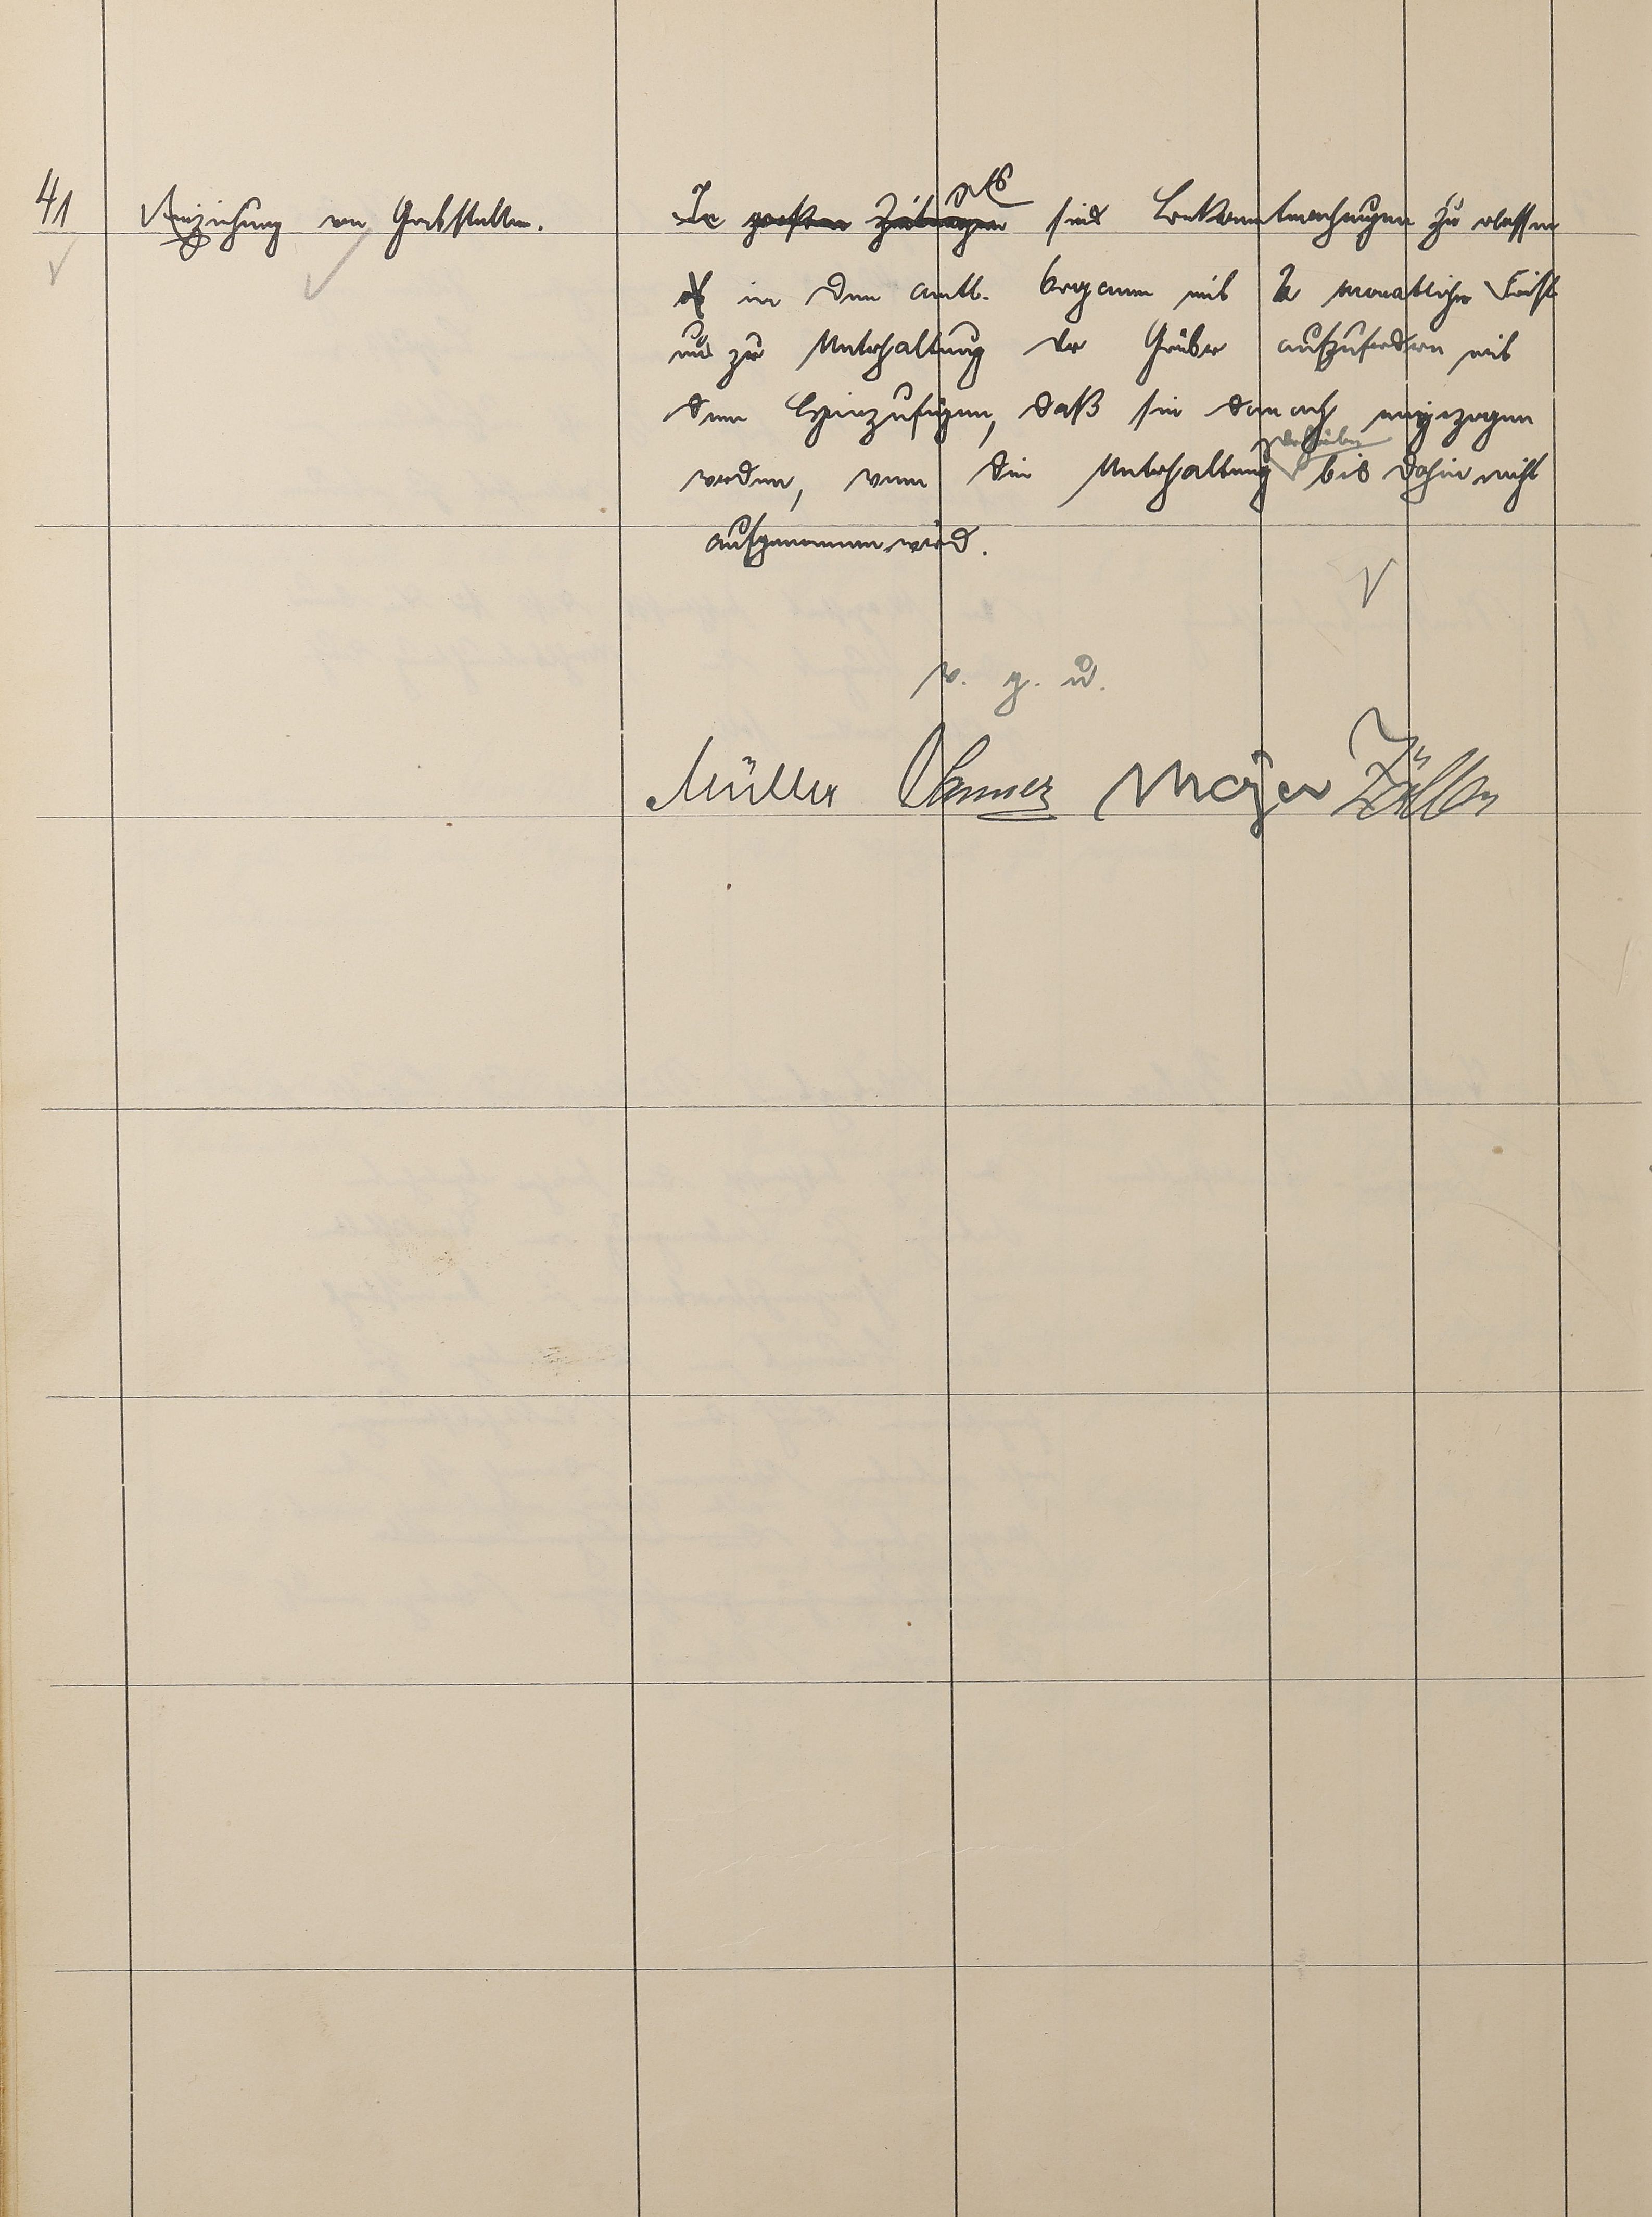 41 Einziehung von Grabstellen.
In großen Zeitungen sind Bekanntmachungen zu erlassen
in den amtl. Organen mit 2 monatlicher Frist
und zur Unterhaltung der Gräber aufzufordern mit
dem Hinzufügen, daß sie danach eingezogen
werden, wenn die Unterhaltung bis dahin nicht
aufgenommen wird.
v. g. u.
Müller Mayer